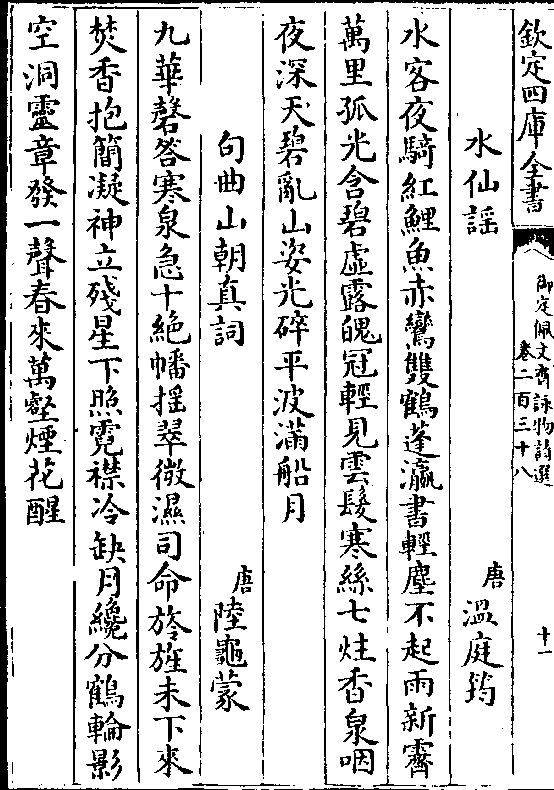 欽定四庫全書
御定佩文齋詠物詩選
卷二百三十八
十一
水仙謠
唐 溫庭筠
水客夜騎紅鯉魚赤鸞雙鶴蓬瀛書輕塵不起雨新霽
萬里孤光含碧虛露魄冠輕見雲髮寒絲七炷香泉咽
夜深天碧亂山姿光碎平波滿船月
句曲山朝真詞
唐 陸龜蒙
九華磬答寒泉急十絶幡摇翠微濕司命旍旌未下來
焚香抱簡凝神立殘星下照霓襟冷缺月纔分鶴輪影
空洞靈章發一聲春來萬壑煙花醒